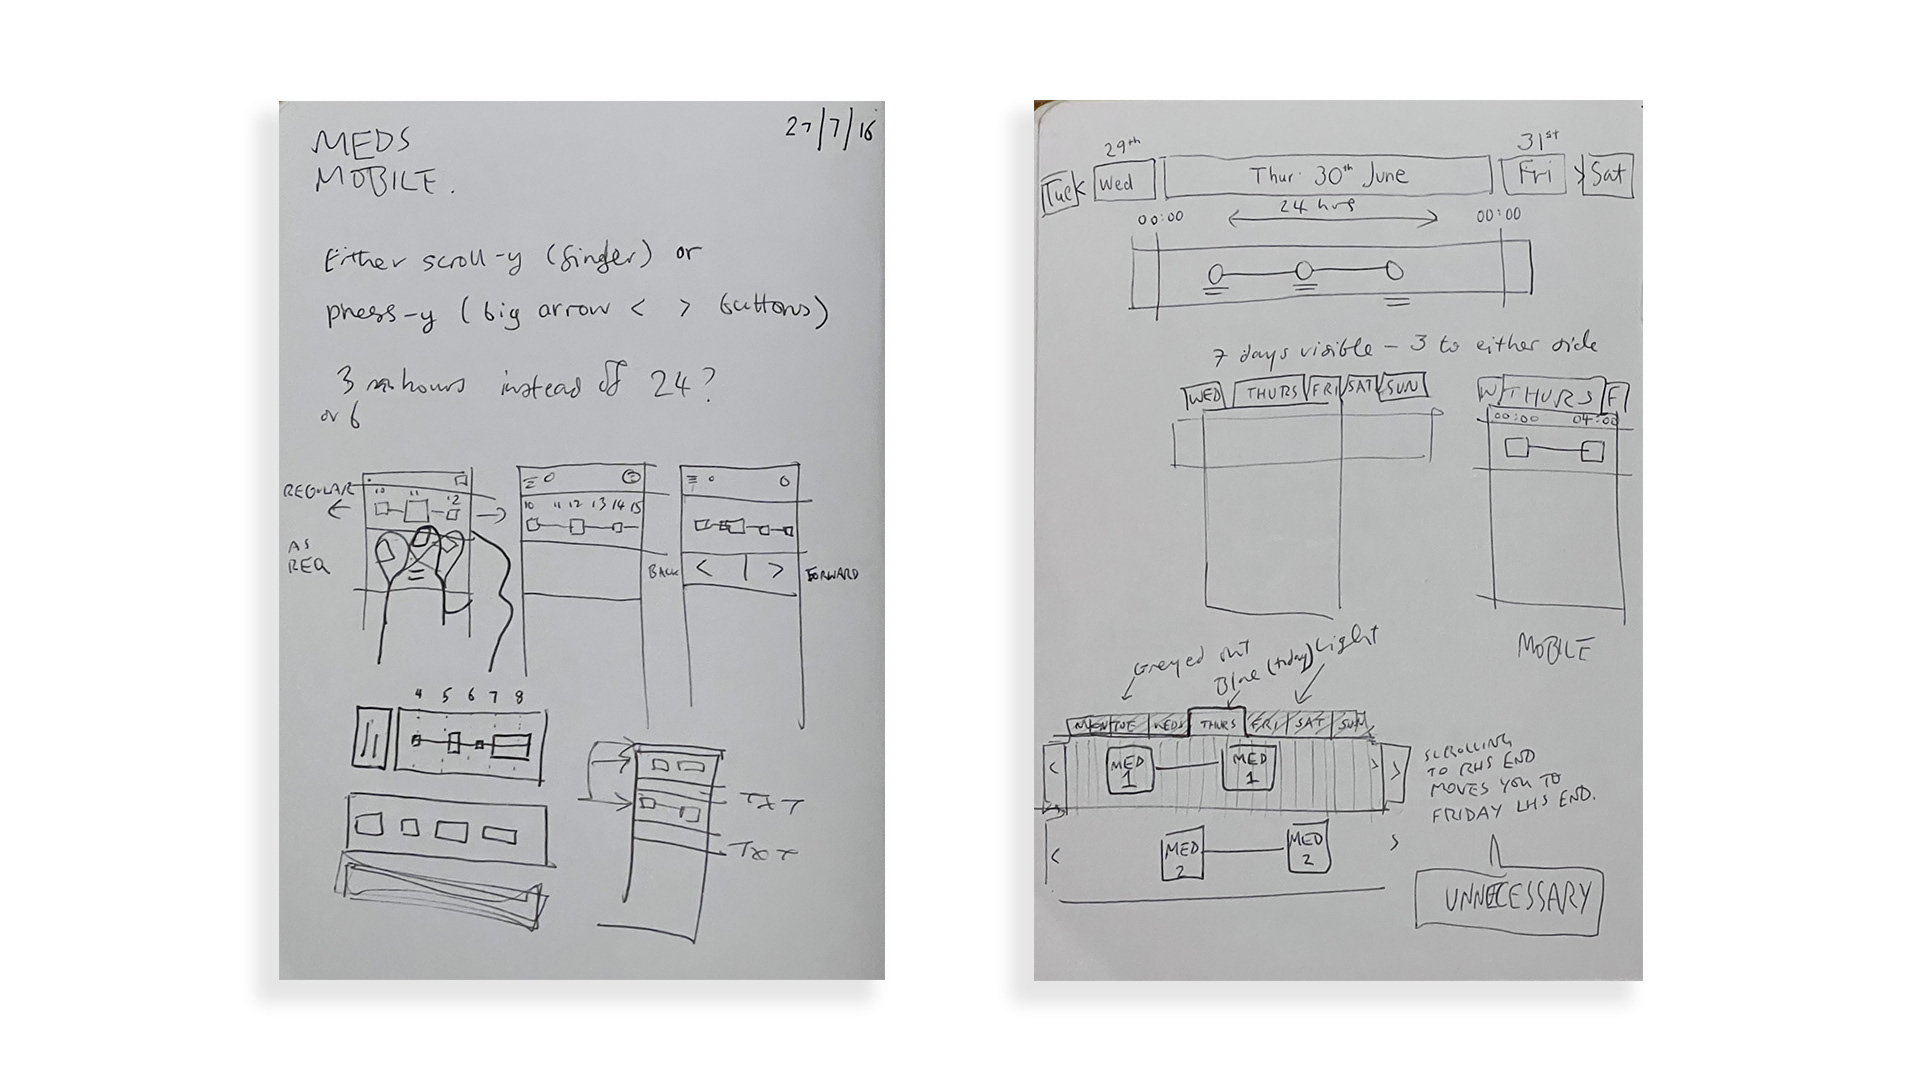 MEDS
MOBILE.
27/7/16
Either scroll-y (finger) or
press-y (big arrow < > buttons)
3 hours instead of 24?
or 6
REGULAR
10 11 12
AS
REQ
10 11 12 13 14 15
BACK
< >
FORWARD
4 5 6 7 8
TXT
TXT
29th
31st
Tue
< Wed
Thur. 30th June
Fri >
Sat
00:00
24 hrs
00:00
7 days visible - 3 to either side
WED THURS FRI SAT SUN
W THURS F
00:00 04:00
MOBILE
Greyed out
Blue (today)
Light
MON TUE WEDS THURS FRI SAT SUN
< MED 1 MED 1 > >
< MED 2 MED 2 >
SCROLLING
TO RHS END
MOVES YOU TO
FRIDAY LHS END.
UNNECESSARY